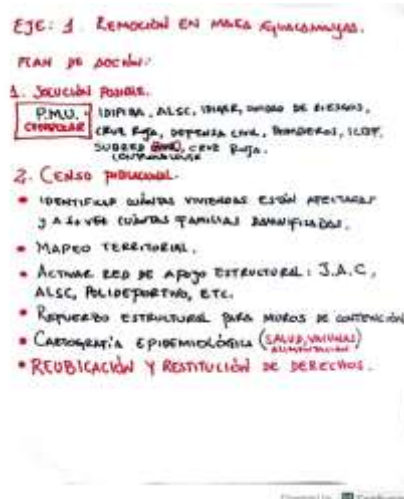 EJE: 1 REMOCIÓN EN MASA GUACAMAYAS.
PLAN DE ACCIÓN:
1. SOLUCIÓN POSIBLE.
P.M.U. CONVOCAR IDIPRON, ALSC, IDIGER, UNIDAD DE RIESGOS,
CRUZ ROJA, DEFENSA CIVIL, BOMBEROS, ICBF,
SUBRED CRUZ ROJA.
2. CENSO POBLACIONAL.
• IDENTIFICAR CUÁNTAS VIVIENDAS ESTÁN AFECTADAS
Y A SU VEZ CUÁNTAS FAMILIAS DAMNIFICADAS.
• MAPEO TERRITORIAL.
• ACTIVAR RED DE APOYO ESTRUCTURAL: J.A.C,
ALSC, POLIDEPORTIVO, ETC.
• REFUERZO ESTRUCTURAL PARA MUROS DE CONTENCIÓN
• CARTOGRAFÍA EPIDEMIOLÓGICA (SALUD, VACUNAS
ALIMENTACIÓN)
• REUBICACIÓN Y RESTITUCIÓN DE DERECHOS.